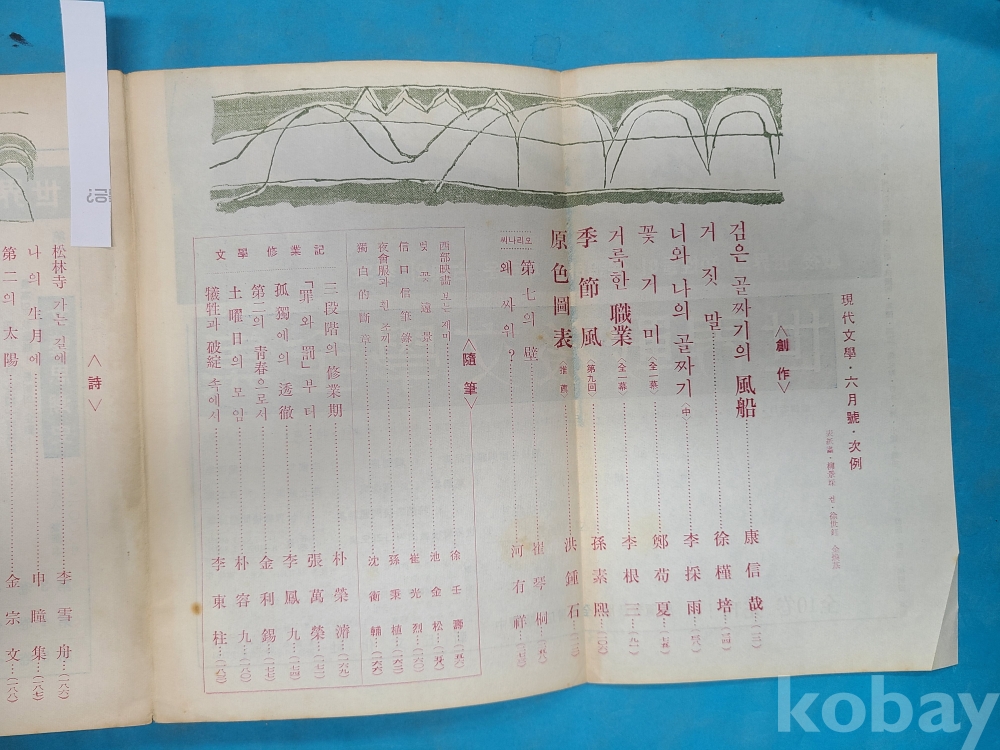 現代文學·六月號·次例
〈創作〉
검은 골짜기의 風船 康信哉
거짓말 徐槿培
너와 나의 골짜기〈中〉 李採雨
꽃기미〈全一幕〉 鄭苟夏
거룩한 職業〈全一幕〉 李根三
季節風〈第九回〉 孫素熙
原色圖表〈推薦〉 洪鍾石
씨나리오
第七의 壁 崔琴桐
왜 싸워? 河有祥
〈隨筆〉
西部映畵 보는 재미 徐壬壽
꽃 遠景 池金松
信口信筆錄 崔光烈
夜會服과 흰 조끼 孫秉植
獨白的斷章 沈衡輔
文學修業記
三段階의 修業期 朴榮濬
「罪와 罰」부터 張萬榮
孤獨에의 透徹 李鳳九
第二의 靑春으로서 金利錫
土曜日의 모임 朴容九
犧牲과 破綻 속에서 李東柱
〈詩〉
松林寺 가는 길에 李雪舟
나의 生月에 申瞳集
第二의 太陽 金宗文
kobay